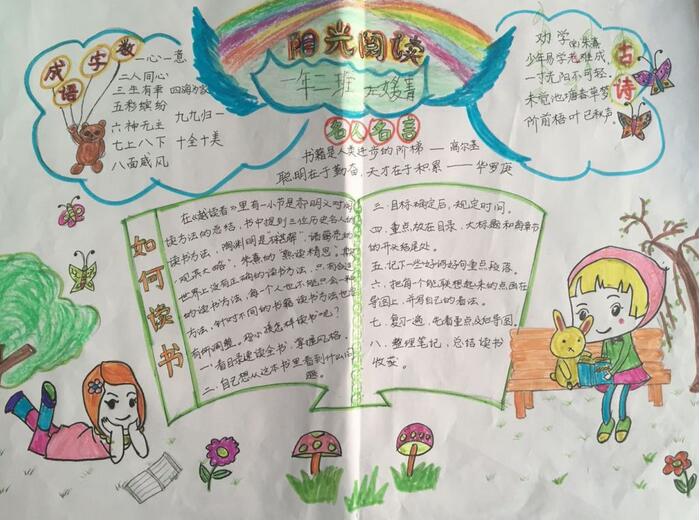 阳光阅读
一年二班
成语
数字
一心一意
二人同心
三生有幸 四海为家
五彩缤纷
六神无主 九九归一
七上八下 十全十美
八面威风
劝学 朱熹
少年易学老难成,
一寸光阴不可轻。
未觉池塘春草梦
阶前梧叶已秋声。
古诗
名人名言
书籍是人类进步的阶梯 — 高尔基
聪明在于勤奋,天才在于积累 —— 华罗庚
如何读书
在《越读者》里有一小节是郝明义对阅
读方法的总结,书中提到三位历史名人的
读书方法,陶渊明是“不求甚解”,诸葛亮的
“观其大略”,朱熹的“熟读精思”。
世界上没有正确的读书方法,只有合适
的读书方法,每个人也不能只会一种
方法,针对不同的书籍读书方法也会
有所调整。
一.看目录速读全书,掌握风格。
二.自己想从这本书里看到什么问
题。
三.目标确定后,规定时间。
四.重点放在目录、大标题和每章节
的开头结尾处。
五.记下一些好词好句重点段落。
六.把每个能联想起来的点画在
导图上,并写自己的看法。
七.复习一遍,先看重点及如导图。
八.整理笔记,总结读书
收获。